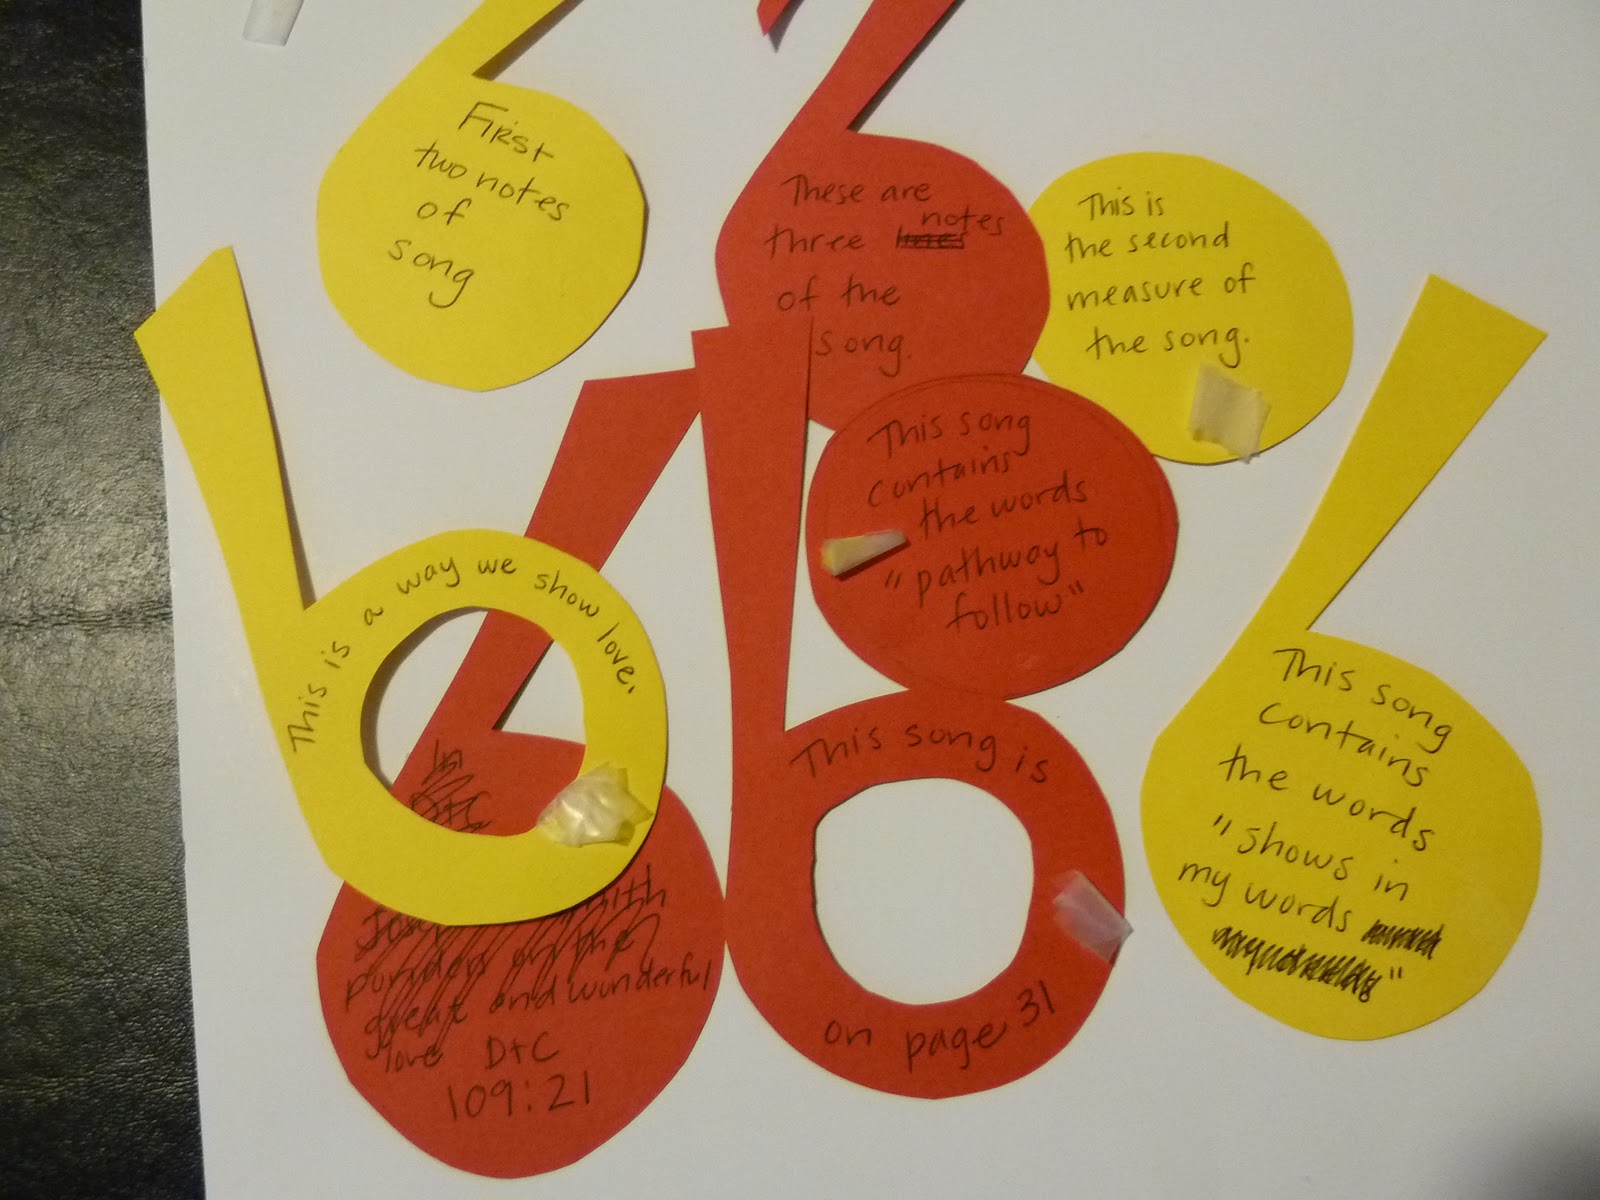 First
two notes
of
song
These are
three notes
of the
song.
This is
the second
measure of
the song.
This song
contains
the words
"pathway to
follow"
This is a way we show love.
This song is
on page 31
This song
contains
the words
"shows in
my words
"
In
D+C
great and wonderful
love D+C
109:21